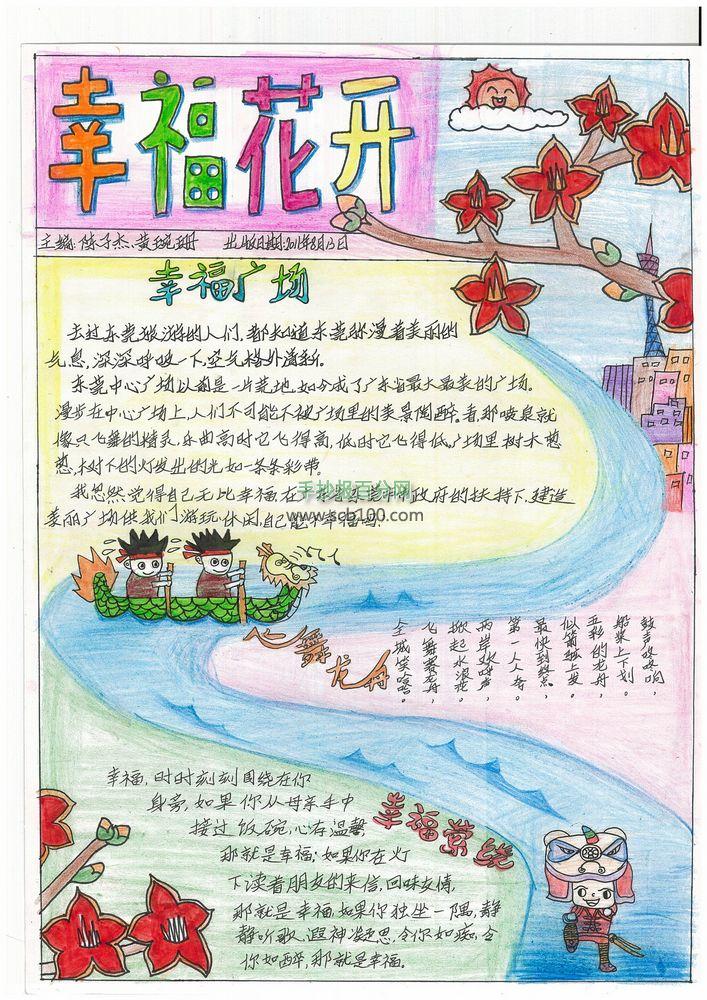 幸福花开
主编:陈子杰、黄琬珊 出版日期:2011年8月13日
幸福广场
去过东莞旅游的人们,都知道东莞弥漫着美丽的
气息,深深呼吸一下,空气格外清新。
东莞中心广场以前是一片荒地,如今成了广东省最大最美的广场。
漫步在中心广场上,人们不可能不被广场里的美景陶醉。看,那喷泉就
像只飞舞的精灵,乐曲高时它飞得高,低时它飞得低。广场里树木葱
葱,树下的灯发出的光如一条条彩带。
我忽然觉得自己无比幸福,在 政府的扶持下,建造
美丽广场供我们游玩休闲,自己能不幸福吗
手抄报百分网
www.scb100.com
心舞龙舟
鼓声咚咚响,
船桨上下划。
五彩的龙舟,
似箭城上发。
最快到终点,
第一人人夸。
两岸欢呼声,
掀起水浪花。
飞舞着龙舟,
全城笑嘻嘻。
幸福萦绕
幸福,时时刻刻围绕在你
身旁,如果你从母亲手中
接过饭碗,心存温馨
那就是幸福;如果你在灯
下读着朋友的来信,回味友情,
那就是幸福,如果你独坐一隅,静
静听歌,凝神遐思,令你如痴,令
你如醉,那就是幸福。